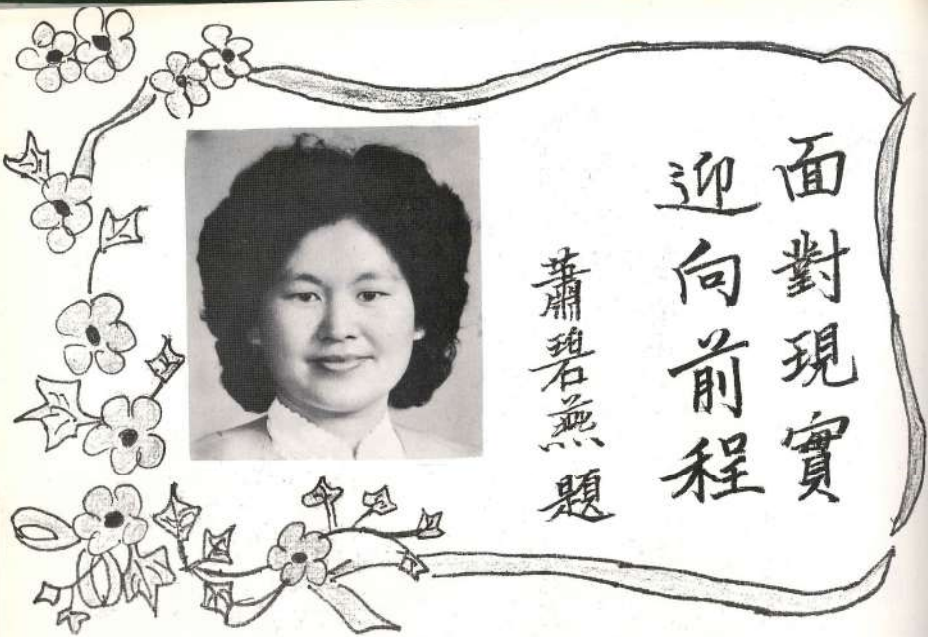 面對現實
迎向前程
蕭碧燕題